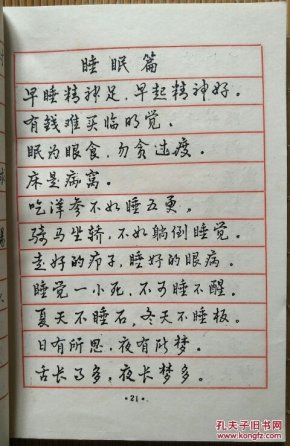 睡眠篇
早睡精神足，早起精神好。
有钱难买临明觉。
眠为眼食，勿贪过度。
床是病窝。
吃洋参不如睡五更。
骑马坐轿，不如躺倒睡觉。
走好的疖子，睡好的眼病。
睡觉一小死，不可睡不醒。
夏天不睡石，冬天不睡板。
日有所思，夜有所梦。
舌长了多，夜长梦多。
·21·
孔夫子旧书网